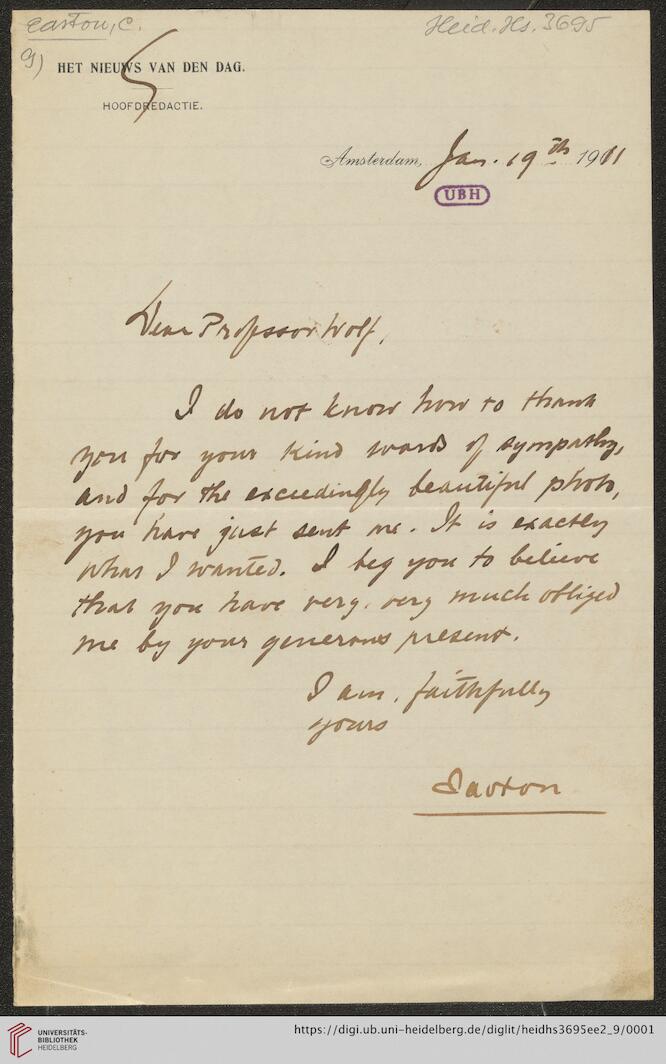 Easton, C.
Heid. Hs. 3695
9)
HET NIEUWS VAN DEN DAG.
HOOFDREDACTIE.
Amsterdam, Jan. 19th 1911
UBH
Dear Professor Wolf,
I do not know how to thank
you for your kind words of sympathy,
and for the exceedingly beautiful photo,
you have just sent me. It is exactly
what I wanted. I beg you to believe
that you have very, very much obliged
me by your generous present.
I am, faithfully
yours
Easton
UNIVERSITÄTS-
BIBLIOTHEK
HEIDELBERG
https://digi.ub.uni-heidelberg.de/diglit/heidhs3695ee2_9/0001